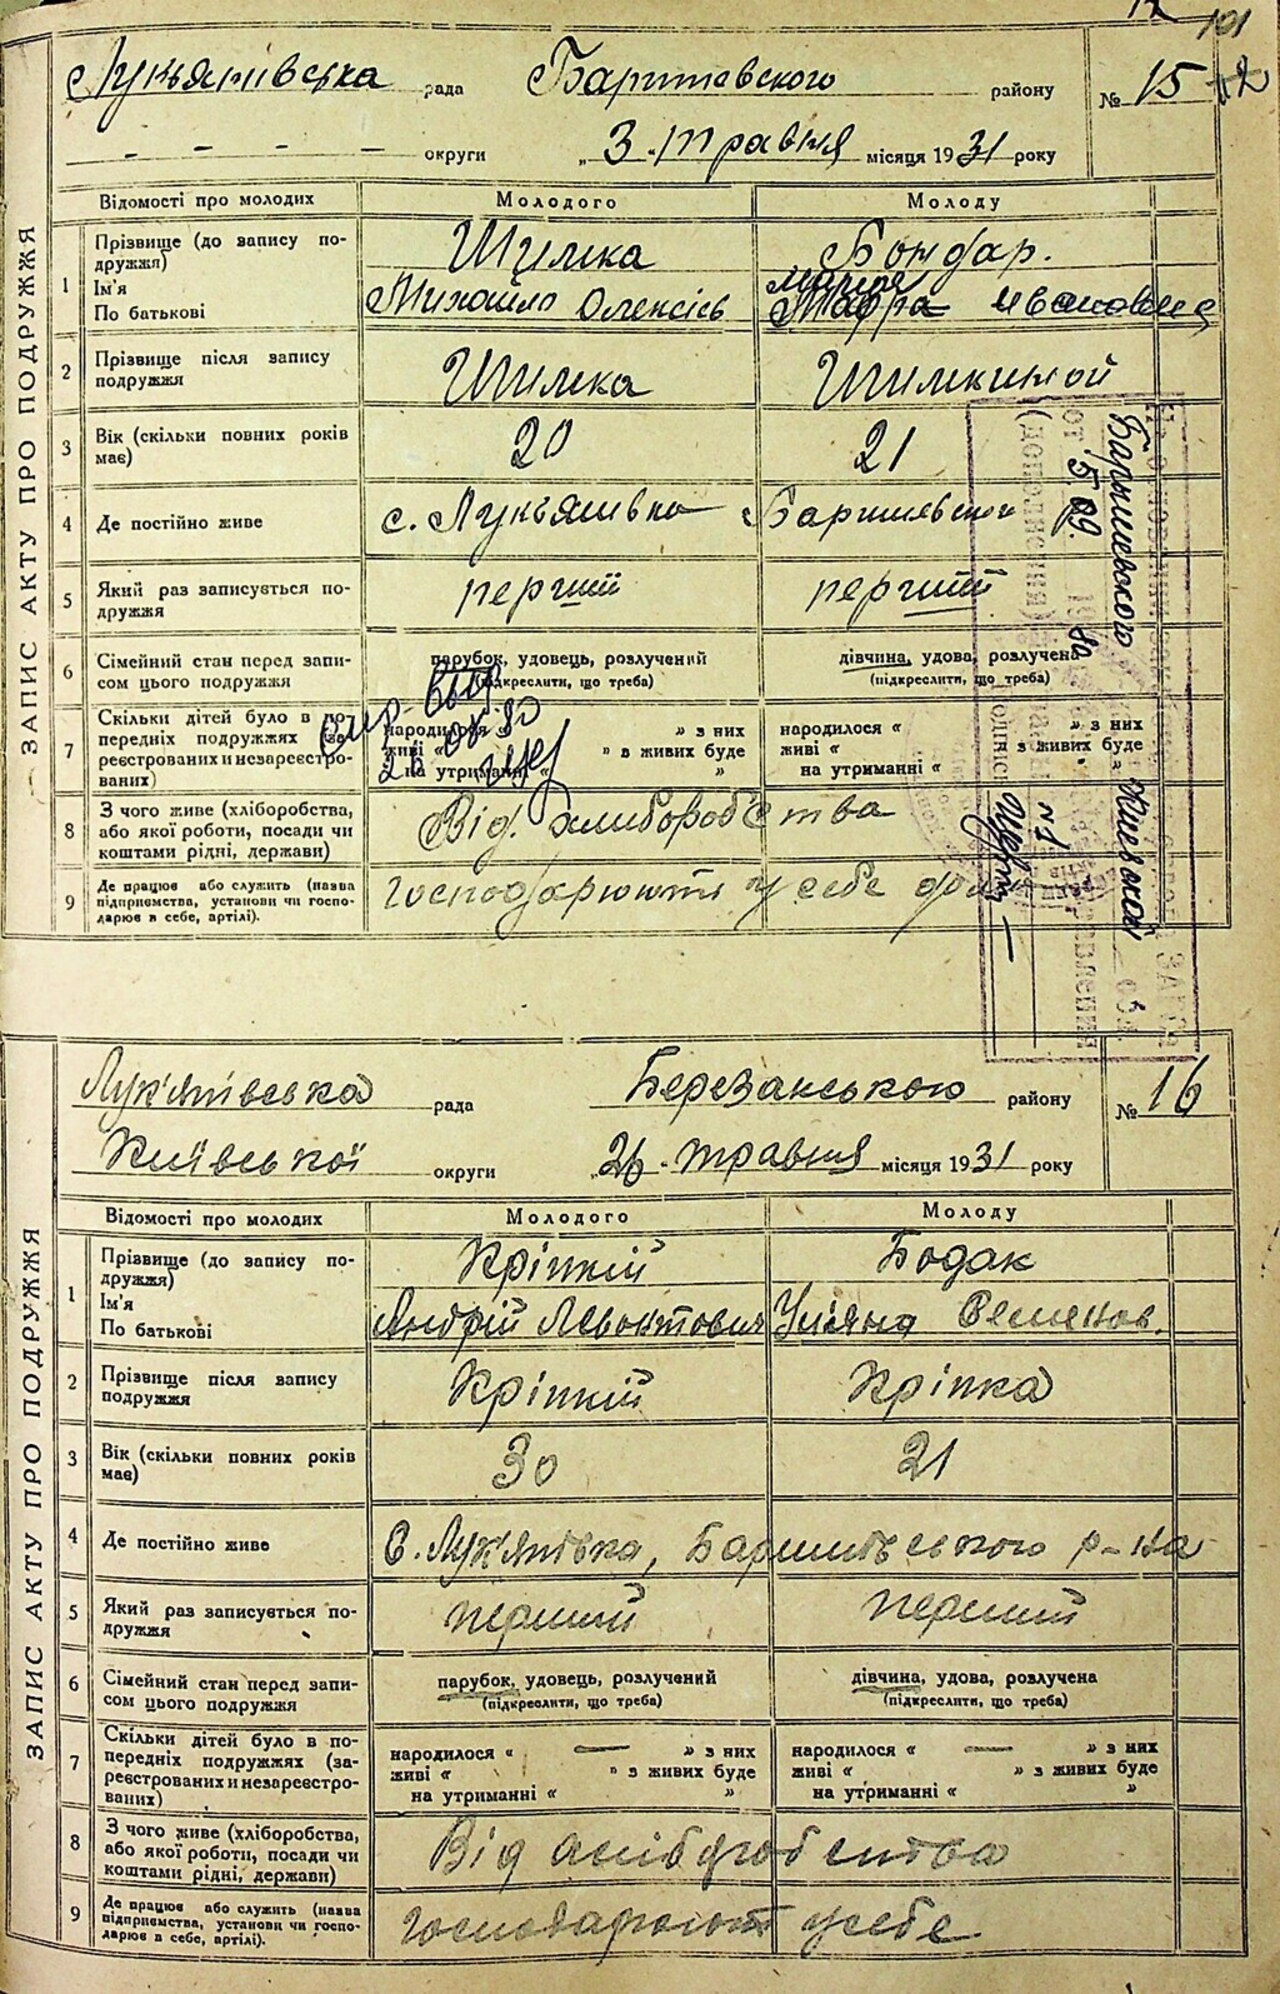 101
Лукьянівська рада Баришевского району № 15
— — — — округи „ 3 · травня місяця 1931 року
ЗАПИС АКТУ ПРО ПОДРУЖЖЯ
Відомості про молодих Молодого Молоду
1 Прізвище (до запису подружжя) Шилка Бондар.
Мария
Ім'я По батькові Михайло Олексієв Мафра Ивановна
2 Прізвище після запису подружжя Шилка Шилкиной
3 Вік (скільки повних років має) 20 21
4 Де постійно живе с. Лукьянивка Баришевского
5 Який раз записується подружжя перший перший
6 Сімейний стан перед записом цього подружжя парубок, удовець, розлучений дівчина, удова, розлучена
(підкреслити, що треба) (підкреслити, що треба)
7 Скільки дітей було в попередніх подружжях (зареєстрованих и незареєстрованих) народилося « » з них народилося « » з них
живі « » в живих буде живі « » з живих буде
на утриманні « » на утриманні « »
8 З чого живе (хліборобства, або якої роботи, посади чи коштами рідні, держави) Від. хлиборобства
9 Де працює або служить (назва підприємства, установи чи господарює в себе, артілі). господарюють у себе дома
Барышевского
от 5.09. 1980
(дополнения)
Киевской обл.
№1
ЗАГСа
Лук'янівська рада Березанського району № 16
Київської округи „26 · травня місяця 1931 року
ЗАПИС АКТУ ПРО ПОДРУЖЖЯ
Відомості про молодих Молодого Молоду
1 Прізвище (до запису подружжя) Кріпкій Бодак
Ім'я По батькові Андрій Левонтович Ул'яна Семенов.
2 Прізвище після запису подружжя Кріпкій Кріпка
3 Вік (скільки повних років має) 30 21
4 Де постійно живе С. Лук'янівка, Баришівського р-на
5 Який раз записується подружжя перший перший
6 Сімейний стан перед записом цього подружжя парубок, удовець, розлучений дівчина, удова, розлучена
(підкреслити, що треба) (підкреслити, що треба)
7 Скільки дітей було в попередніх подружжях (зареєстрованих и незареєстрованих) народилося « — » з них народилося « — » з них
живі « » з живих буде живі « » з живих буде
на утриманні « » на утриманні « »
8 З чого живе (хліборобства, або якої роботи, посади чи коштами рідні, держави) Від хліборобства
9 Де працює або служить (назва підприємства, установи чи господарює в себе, артілі). господарюют усебе